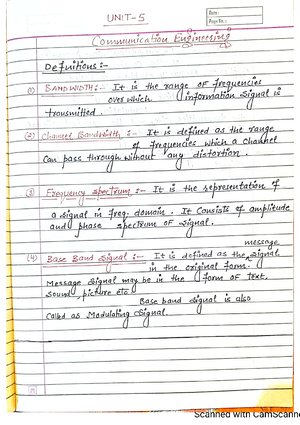 UNIT-5
Date :
Page No. :
Communication Engineering
Definitions :-
(1) BANDWIDTH :- It is the range of frequencies
over which information signal is
transmitted .
(2) Channel Bandwidth :- It is defined as the range
of frequencies which a channel
Can pass through without any distortion .
(3) Frequency Spectrum :- It is the representation of
a signal in freq. domain . It Consists of amplitude
and phase spectrum of signal.
(4) Base Band Signal :- It is defined as the message signal
in the original form.
Message signal may be in the form of text,
sound, picture etc
Base band signal is also
Called as Modulating Signal.
Scanned with CamScanne